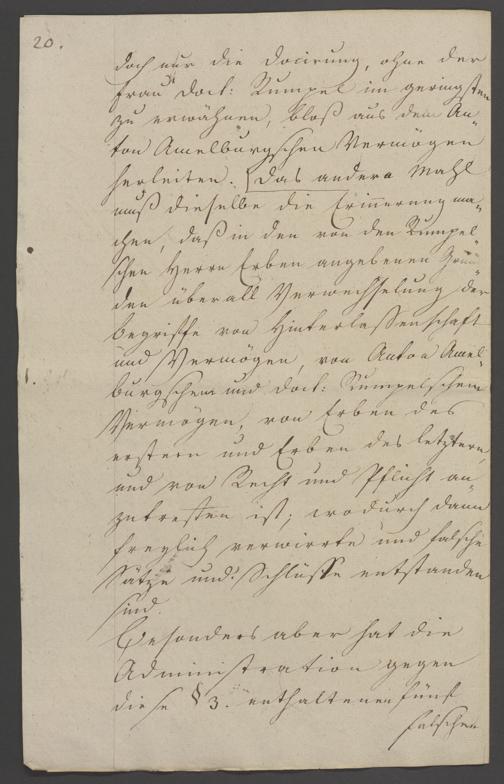 20.
doch nur die Docirung, ohne der
Frau Doct: Rumpel im geringsten
zu erwähnen, bloß aus dem An-
ton Amelburgschen Vermögen
herleiten. Das andere Mahl
muß dieselbe die Erinnerung ma-
chen, daß in den von den Rumpel-
schen Herrn Erben angebenen Grün-
den überall Verwechselung der
Begriffe von Hinterlassenschaft
und Vermögen, von Anton Amel-
burgschem und Doct: Rumpelschem
Vermögen, von Erben des
erstern und Erben des letztern,
und von Recht und Pflicht an-
zutreffen ist; wodurch dann
freylich verwirrte und falsche
Sätze und Schlüsse entstanden
sind.
Besonders aber hat die
Administration gegen
diese § 3. enthaltenen fünf
falschen